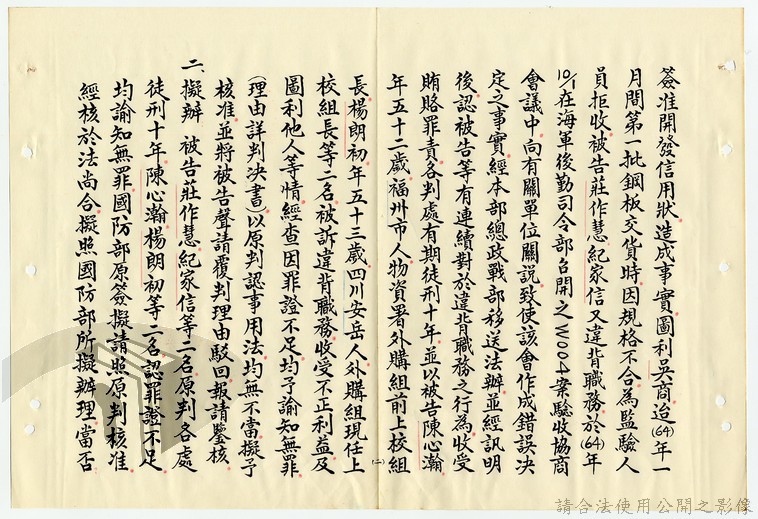 簽准開發信用狀造成事實圖利吳商迨(64)年一
月間第一批鋼板交貨時因規格不合為監驗人
員拒收被告莊作慧紀家信又違背職務於(64)年
10/1在海軍後勤司令部召開之W004案驗收協商
會議中向有關單位關說致使該會作成錯誤決
定之事實經本部總政戰部移送法辦並經訊明
後認被告等有連續對於違背職務之行為收受
賄賂罪責各判處有期徒刑十年並以被告陳心瀚
年五十二歲福州市人物資署外購組前上校組
(二)
長楊朗初年五十三歲四川安岳人外購組現任上
校組長等二名被訴違背職務收受不正利益及
圖利他人等情經查因罪證不足均予諭知無罪
(理由詳判決書)以原判認事用法均無不當擬予
核准並將被告聲請覆判理由駁回報請鑒核
二、擬辦 被告莊作慧紀家信等二名原判各處
徒刑十年陳心瀚楊朗初等二名認罪證不足
均諭知無罪國防部原簽擬請照原判核准
經核於法尚合擬照國防部所擬辦理當否
請合法使用公開之影像